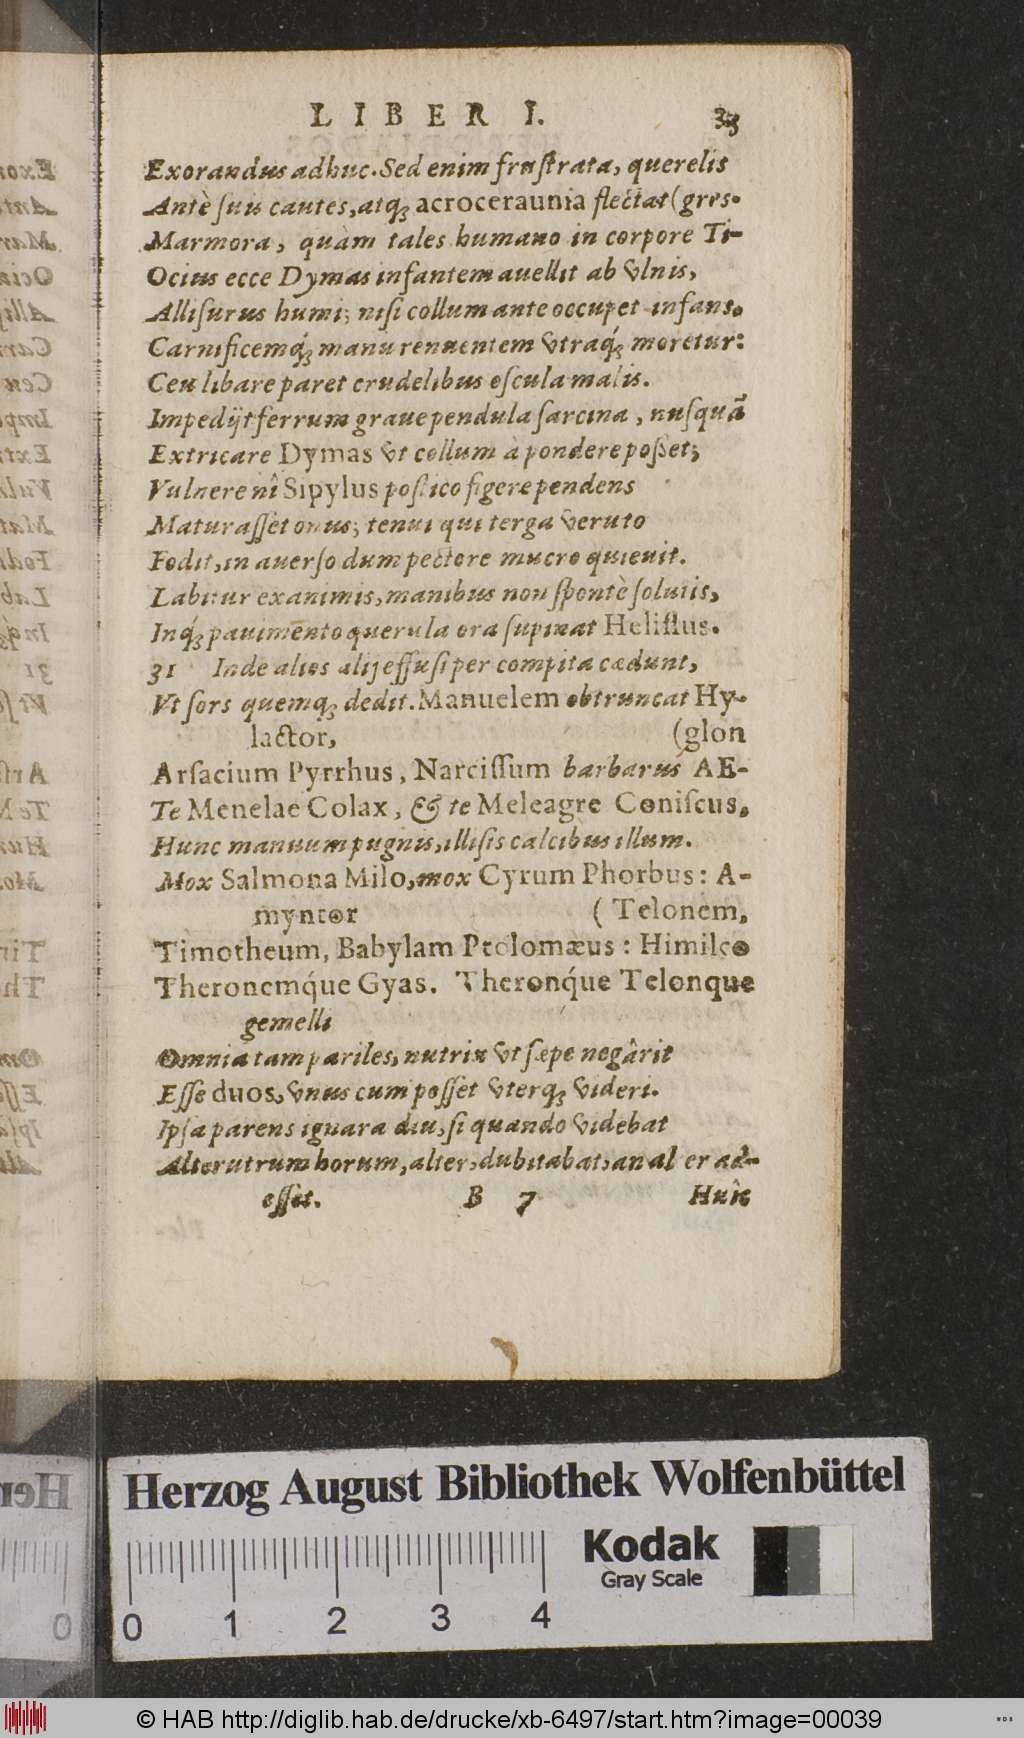 LIBER I. 33
Exorandus adhuc. Sed enim frustrata, querelis
Antè suu cautes, atqꝫ acroceraunia flectat (gres.
Marmora, quàm tales humano in corpore Ti-
Ocius ecce Dymas infantem auellit ab vlnis,
Allisurus humi; nisi collum ante occupet infans.
Carnificemq́ꝫ manu renuentem vtraq́ꝫ moretur:
Ceu libare paret crudelibus oscula malis.
Impedijt ferrum graue pendula sarcina, nusquã
Extricare Dymas vt collum à pondere posset;
Vulnere nî Sipylus postico figere pendens
Maturasset onus; tenui qui terga veruto
Fodit, in auerso dum pectore mucro quieuit.
Labitur exanimis, manibus non spontè solutis,
Inq́ꝫ pauimento querula ora supinat Helissus.
31 Inde alios alij effusi per compita cædunt,
Vt sors quemqꝫ dedit. Manuelem obtruncat Hy-
lactor, (glon
Arsacium Pyrrhus, Narcissum barbarus AE-
Te Menelae Colax, & te Meleagre Coniscus,
Hunc manuum pugnis, illisis calcibus illum.
Mox Salmona Milo, mox Cyrum Phorbus: A-
myntor (Telonem,
Timotheum, Babylam Ptolomæus: Himilco
Theronemq́ue Gyas. Theronq́ue Telonque
gemelli
Omnia tam pariles, nutrix vt sæpe negârit
Esse duos, vnus cum posset vterqꝫ videri.
Ipsa parens ignara diu, si quando videbat
Alterutrum horum, alter, dubitabat, an al er ad-
esset. B 7 Hunc
Herzog August Bibliothek Wolfenbüttel
Kodak
Gray Scale
0 0 1 2 3 4
© HAB http://diglib.hab.de/drucke/xb-6497/start.htm?image=00039